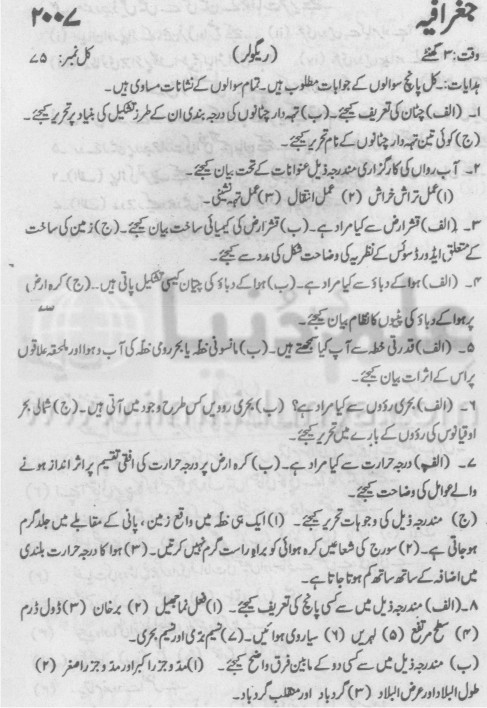 جغرافیہ
۲۰۰۷
وقت: ۳ گھنٹے (ریگولر) کل نمبر: ۷۵
ہدایات:۔ کل پانچ سوالوں کے جوابات مطلوب ہیں۔ تمام سوالوں کے نشانات مساوی ہیں۔
۱۔ (الف) چٹان کی تعریف کیجئے۔ (ب) تہہ دار چٹانوں کی درجہ بندی ان کے طرز تشکیل کی بنیاد پر تحریر کیجئے۔
(ج) کوئی تین تہہ دار چٹانوں کے نام تحریر کیجئے۔
۲۔ آب رواں کی کارگزاری مندرجہ ذیل عنوانات کے تحت بیان کیجئے۔
(۱) عمل تراش خراش (۲) عمل انتقال (۳) عمل تہہ نشینی۔
۳۔ (الف) قشر ارض سے کیا مراد ہے۔ (ب) قشر ارض کی کیمیائی ساخت بیان کیجئے۔ (ج) زمین کی ساخت
کے متعلق ایڈورڈ سوئس کے نظریہ کی وضاحت شکل کی مدد سے کیجئے۔
۴۔ (الف) ہوا کے دباؤ سے کیا مراد ہے۔ (ب) ہوا کے دباؤ کی پٹیاں کیسی تشکیل پاتی ہیں۔ (ج) کرہ ارض
پر ہوا کے دباؤ کی پٹیوں کا نظام بیان کیجئے۔
۵۔ (الف) قدرتی خطہ سے آپ کیا سمجھتے ہیں۔ (ب) مانسونی خطہ یا بحر رومی خطہ کی آب و ہوا اور ملحقہ علاقوں
پر اس کے اثرات بیان کیجئے۔
۶۔ (الف) بحری روؤں سے کیا مراد ہے؟ (ب) بحری روویں کس طرح وجود میں آتی ہیں۔ (ج) شمالی بحر
اوقیانوس کی روؤں کے بارے میں تحریر کیجئے۔
۷۔ (الف) درجہ حرارت سے کیا مراد ہے۔ (ب) کرہ ارض پر درجہ حرارت کی افقی تقسیم پر اثر انداز ہونے
والے عوامل کی وضاحت کیجئے۔
(ج) مندرجہ ذیل کی وجوہات تحریر کیجئے۔ (۱) ایک ہی خطہ میں واقع زمین، پانی کے مقابلے میں جلد گرم
ہو جاتی ہے۔ (۲) سورج کی شعاعیں کرہ ہوائی کو براہ راست گرم نہیں کرتیں۔ (۳) ہوا کا درجہ حرارت بلندی
میں اضافہ کے ساتھ ساتھ کم ہوتا جاتا ہے۔
۸۔ (الف) مندرجہ ذیل میں سے کسی پانچ کی تعریف کیجئے۔ (۱) نعل نما جھیل (۲) برخان (۳) ڈول ڈرم
(۴) سطح مرتفع (۵) لہریں (۶) سیاروی ہوائیں۔ (۷) نسیم بری اور نسیم بحری۔
(ب) مندرجہ ذیل میں سے کسی دو کے مابین فرق واضح کیجئے۔ (۱) مدوجزر اکبر اور مدوجزر اصغر (۲)
طول البلاد اور عرض البلاد (۳) گردباد اور منقلب گردباد۔